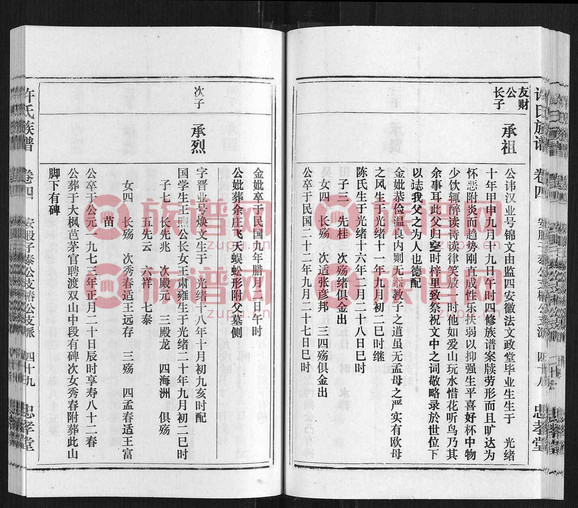 许氏族谱 卷四
四十八 忠孝堂
友财公长子
承祖
公讳汉业号锦文由监四安徽法文政堂毕业生生于 光绪
十年甲申九月十九日午时四修族谱案牍劳形而且旷达为
怀恶附炎而趋势刚直成性乐扶弱以抑强生平喜好杯中物
少饮辄醉读持读律笑敖一时他如爱山玩水惜花听鸟乃其
余事耳此父归空时梓里致祭祝文中之词敬略录於世位下
以誌我父之为人也德配
金妣恭俭温良内则无忝教子之道虽无孟母之严实有欧母
之风生于光绪十一年九月初二巳时继
陈氏生于光绪十六年二月二十八日巳时
子三 先桂 次殇 绪俱金出
女四 长殇 次适张彦邦 三四殇俱金出
公卒于民国二十二年九月二十七日巳时
金妣卒于民国九年腊月二日午时
公妣葬余庄飞天蜈蚣形附父墓侧
次子
承烈
字晋业号焕文生于 光绪十八年十月初九亥时配
国学生王 公长女王肃雍生于光绪二十年九月初二巳时
子七 长先兆 次殿元 三殿龙 四海洲 俱殇
五先云 六祥 七泰
女四 长殇 次秀春适王远存 三殇 四孟春适王富
苗
公卒于公元一九七三年正月二十日辰时享寿八十二春
公葬于大枫芭茅官聘渡双山中段有碑次女秀春附葬此山
脚下有碑
许氏族谱 卷四
四十九 忠孝堂
族谱网